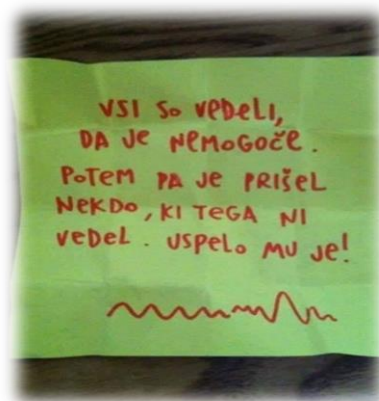 VSI SO VEDELI,
DA JE NEMOGOČE.
POTEM PA JE PRIŠEL
NEKDO, KI TEGA NI
VEDEL. USPELO MU JE!